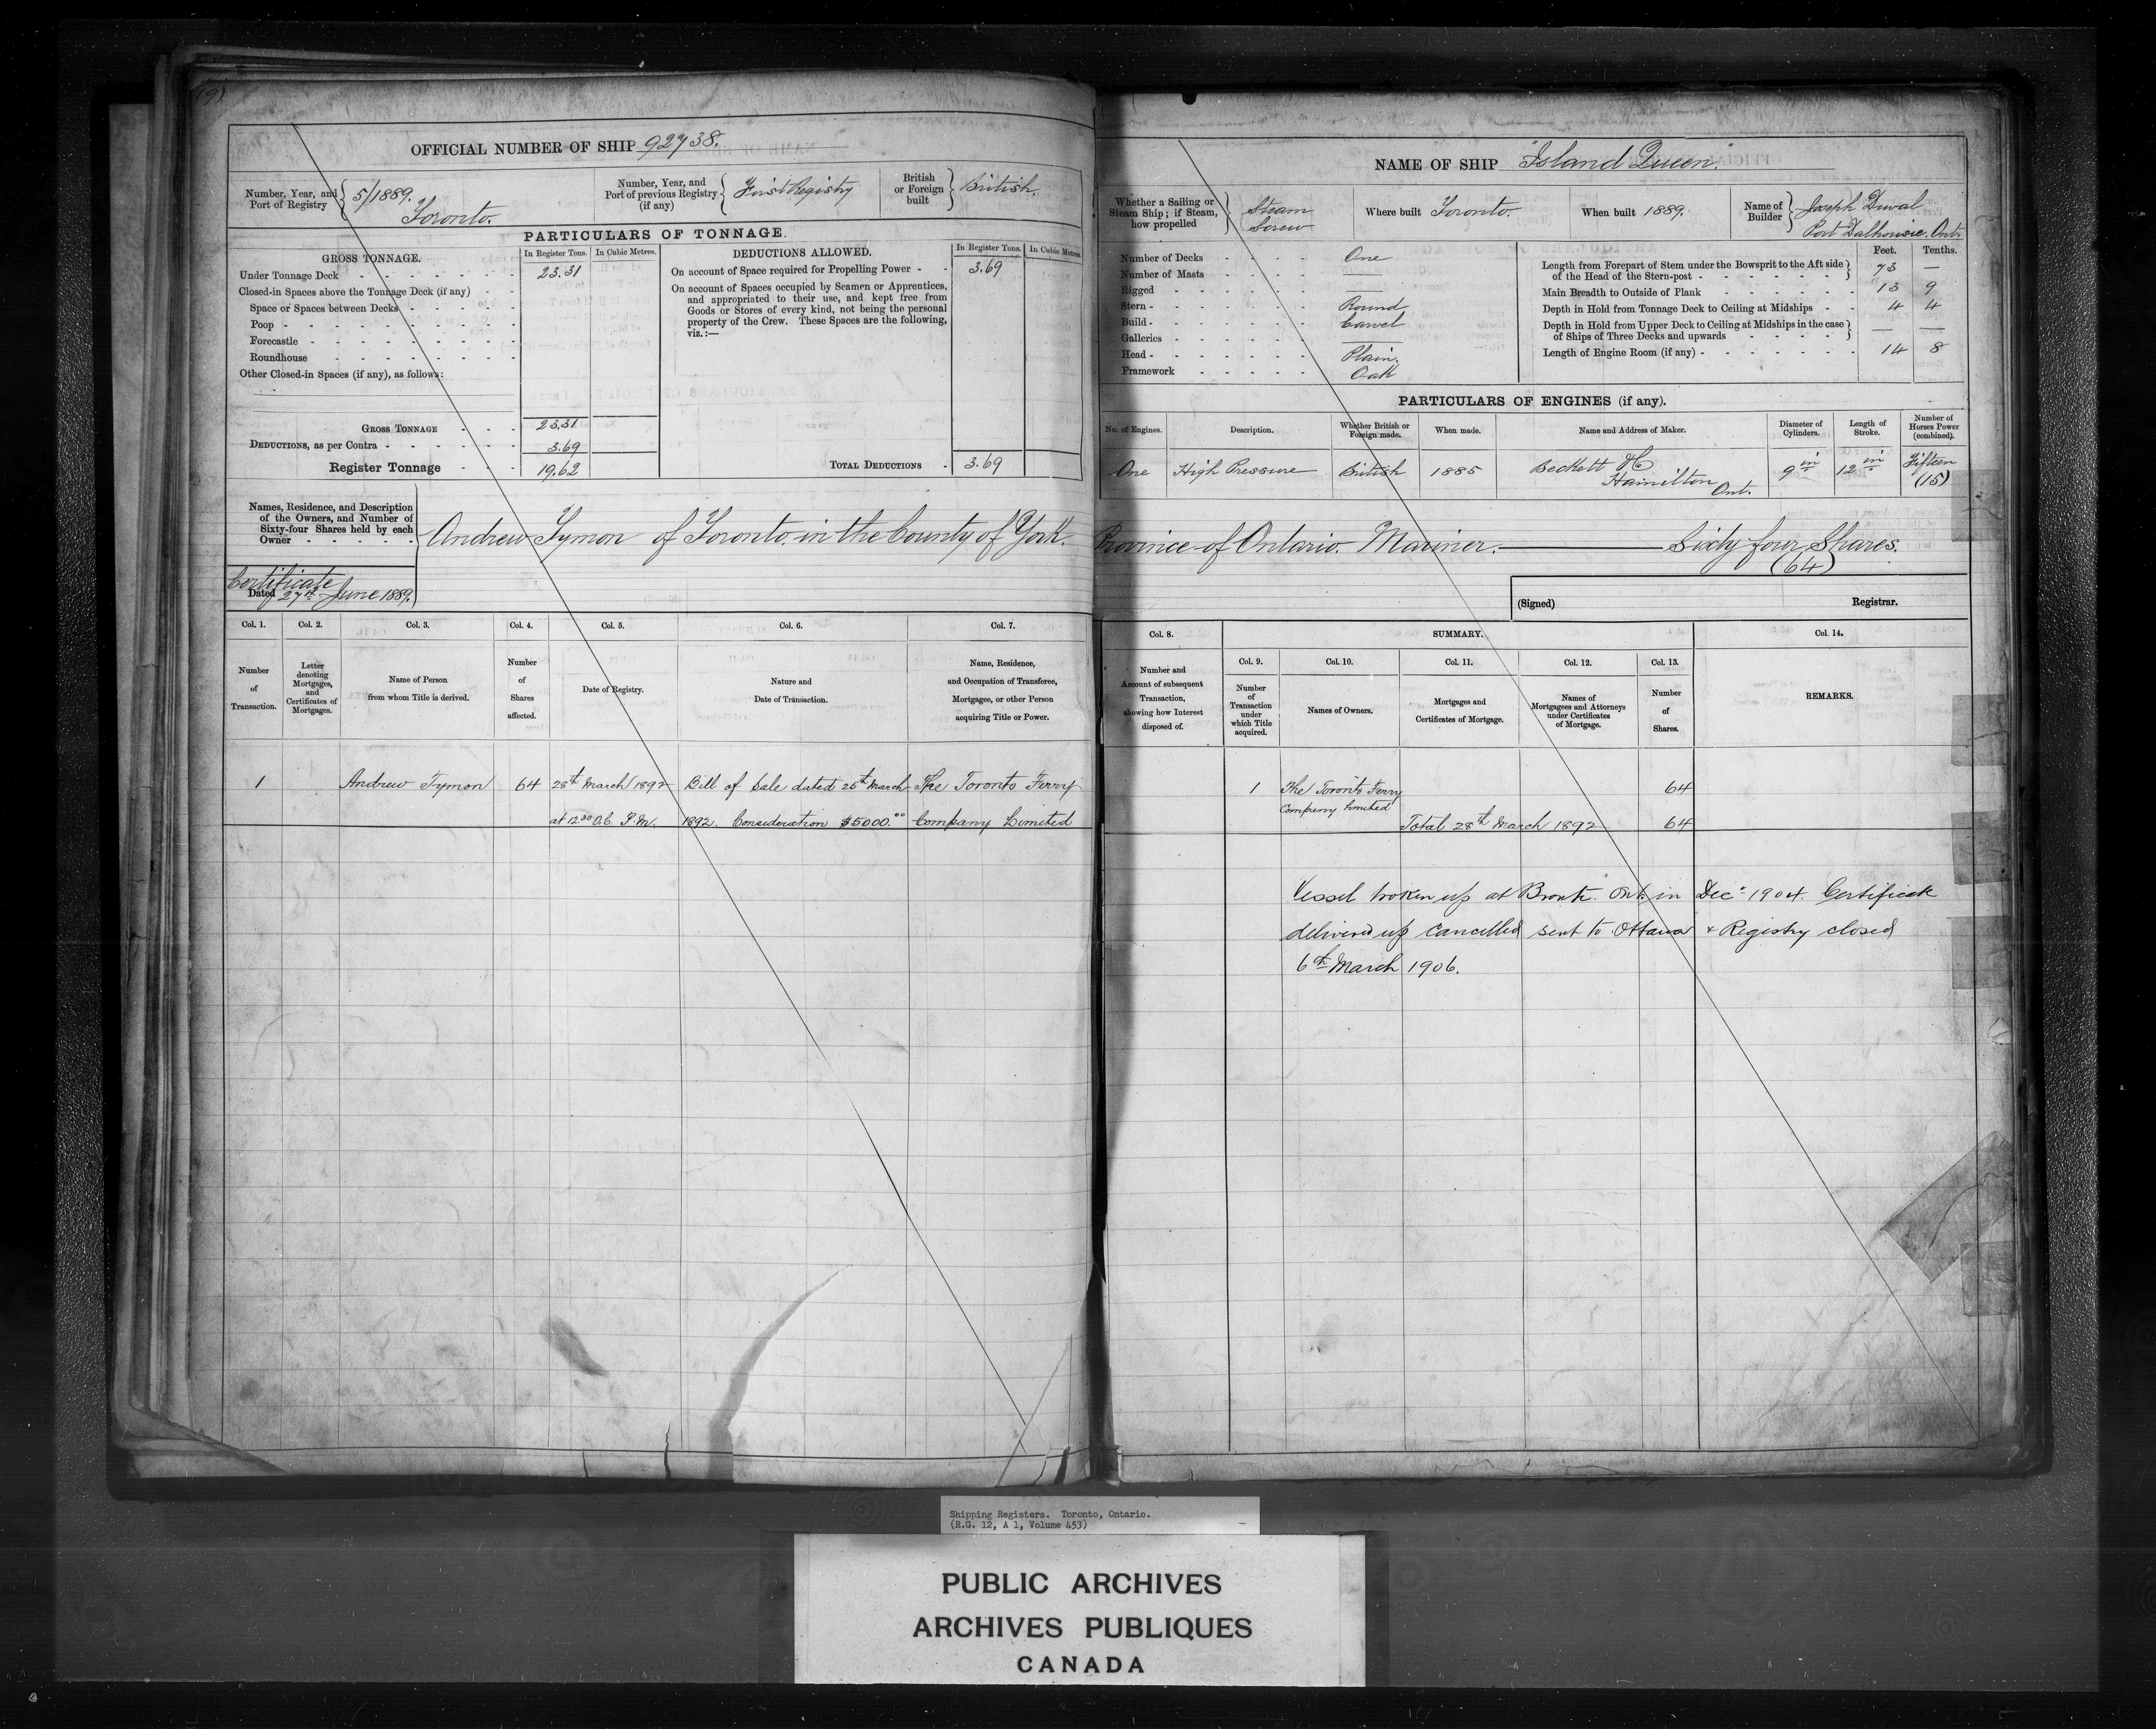 OFFICIAL NUMBER OF SHIP 92738.
Number, Year, and Port of Registry 5/1889. Toronto.
Number, Year, and Port of previous Registry (if any) First Registry
British or Foreign built British.
PARTICULARS OF TONNAGE.
GROSS TONNAGE.
In Register Tons. In Cubic Metres.
Under Tonnage Deck 23.31
Closed-in Spaces above the Tonnage Deck (if any)
Space or Spaces between Decks
Poop
Forecastle
Roundhouse
Other Closed-in Spaces (if any), as follows:
GROSS TONNAGE 23.31
DEDUCTIONS, as per Contra 3.69
Register Tonnage 19.62
DEDUCTIONS ALLOWED.
In Register Tons. In Cubic Metres.
On account of Space required for Propelling Power 3.69
On account of Spaces occupied by Seamen or Apprentices,
and appropriated to their use, and kept free from
Goods or Stores of every kind, not being the personal
property of the Crew. These Spaces are the following,
viz.:—
TOTAL DEDUCTIONS 3.69
NAME OF SHIP "Island Queen."
Whether a Sailing or Steam Ship; if Steam, how propelled Steam Screw
Where built Toronto.
When built 1889.
Name of Builder Joseph Duval Port Dalhousie. Ont.
Number of Decks One
Number of Masts —
Rigged —
Stern Round
Build Carvel
Galleries —
Head Plain.
Framework Oak
Feet. Tenths.
Length from Forepart of Stem under the Bowsprit to the Aft side
of the Head of the Stern-post 73 —
Main Breadth to Outside of Plank 13 9
Depth in Hold from Tonnage Deck to Ceiling at Midships 4 4
Depth in Hold from Upper Deck to Ceiling at Midships in the case
of Ships of Three Decks and upwards — —
Length of Engine Room (if any) 14 8
PARTICULARS OF ENGINES (if any).
No. of Engines. Description. Whether British or Foreign made. When made. Name and Address of Maker. Diameter of Cylinders. Length of Stroke. Number of Horses Power (combined).
One High Pressure British 1885 Beckett & Co Hamilton Ont. 9 in 12 in Fifteen (15)
Names, Residence, and Description
of the Owners, and Number of
Sixty-four Shares held by each
Owner
Andrew Tymon of Toronto. in the County of York. Province of Ontario. Mariner. — Sixty four Shares.
(64)
Certificate
Dated 27th June 1889.
(Signed) Registrar.
Col. 1. Col. 2. Col. 3. Col. 4. Col. 5. Col. 6. Col. 7.
Number of Transaction.
Letter denoting Mortgages, and Certificates of Mortgages.
Name of Person from whom Title is derived.
Number of Shares affected.
Date of Registry.
Nature and Date of Transaction.
Name, Residence, and Occupation of Transferee, Mortgagee, or other Person acquiring Title or Power.
1 Andrew Tymon 64 28th March 1892 Bill of Sale dated 25th March The Toronto Ferry
at 12.30 O.C. P.M. 1892. Consideration $5000.00 Company Limited
Col. 8. SUMMARY. Col. 14.
Col. 9. Col. 10. Col. 11. Col. 12. Col. 13.
Number and Account of subsequent Transaction, showing how Interest disposed of.
Number of Transaction under which Title acquired.
Names of Owners.
Mortgages and Certificates of Mortgage.
Names of Mortgagees and Attorneys under Certificates of Mortgage.
Number of Shares.
REMARKS.
1 The Toronto Ferry 64
Company Limited
Total 28th March 1892 64
Vessel broken up at Bronte. Ont. in Decr 1904. Certificate
delivered up cancelled sent to Ottawa & Registry closed
6th March 1906.
Shipping Registers. Toronto, Ontario.
(R.G. 12, A 1, Volume 453)
PUBLIC ARCHIVES
ARCHIVES PUBLIQUES
CANADA